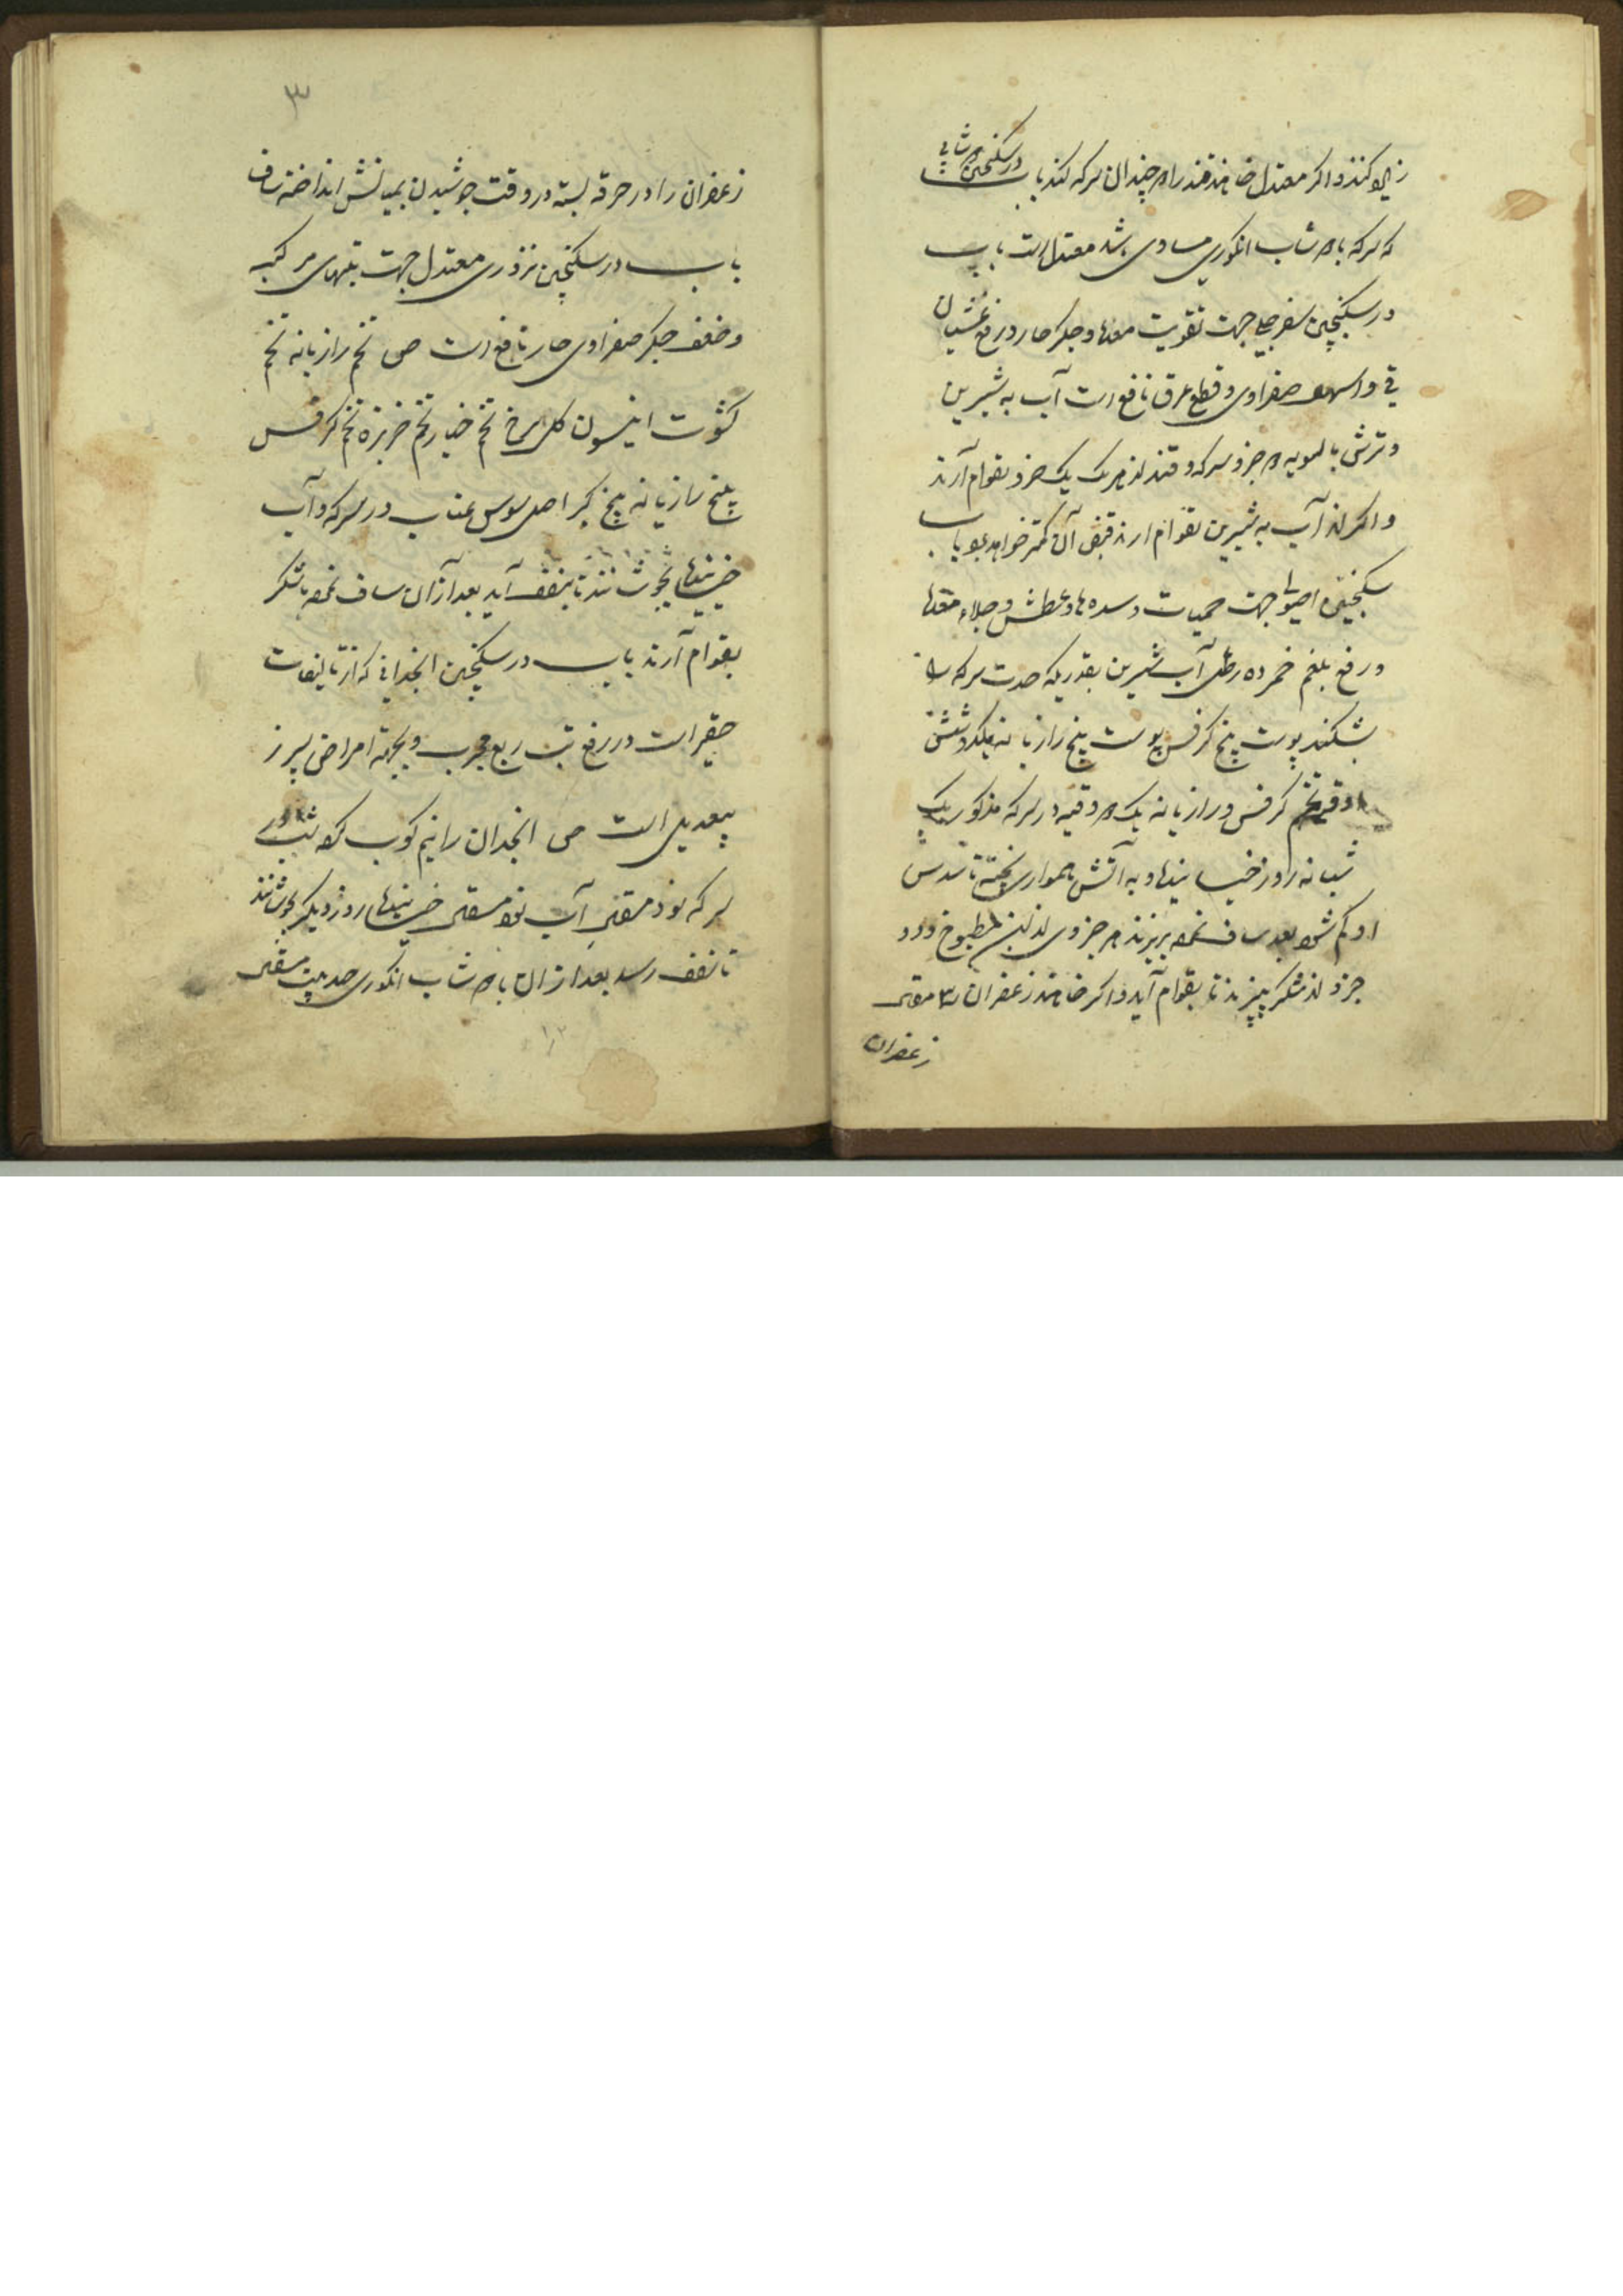 زیاد کنند و اگر معتدل خواهند قند را دو چندان سرکه کنند باب در سکنجبین دوشابی
که سرکه با دوشاب انگوری مساوی باشد معتدل است باب
در سکنجبین سفرجلی جهت تقویت معده و جگر حار و رفع غثیان
قی و اسهال صفراوی و قطع عرق نافع است آب به شیرین
و ترش بالسویه دو جزو سرکه و قند از هر یک یک جزو بقوام آرند
و اگر از آب به شیرین بقوام آرند قبض آن کمتر خواهد بود باب
سکنجبین اصولی جهت حمیات و سده ها و عطش و جلاء معده
و رفع بلغم خمر ده رطل آب شیرین بقدریکه حدت سرکه را
بشکند پوست بیخ کرفس پوست بیخ رازیانه هر یک شش
اوقیه تخم کرفس و رازیانه یک دو وقیه در سرکه مذکور یک
شبانه روز خیسانیده و به آتش هموار پخته تا سدس
او کم شود بعد صاف نموده بریزند هر جزوی از این مطبوخ دو
جزو از شکر بپزند تا بقوام آید و اگر خواهند زعفران ۳ مثقال
زعفران
۳
زعفران را در خرقه بسته در وقت جوشیدن بمیانش انداخته صاف
باب در سکنجبین بزوری معتدل جهت تبهای مرکبه
و ضعف جگر صفراوی حار نافع است ص تخم رازیانه تخم
کثوث انیسون گل سرخ تخم خیار تخم خربزه تخم کرفس
بیخ رازیانه بیخ کبر اصل سوس عناب در سرکه و آب
خیسانیده بجوشانند تا بنصف آید بعد از آن صاف نموده با شکر
بقوام آرند باب در سکنجبین انجدانی که از تالیفات
حقیر است در رفع تب ربع مجرب و بجهة امراض سپرز
بیعدیل است ص انجدان را نیم کوب کرده شب در
سرکه نود مثقال آب نود مثقال خیسانیده روز دیگر بجوشانند
تا نصف رسد بعد از آن با دوشاب انگوری صد بیست مثقال